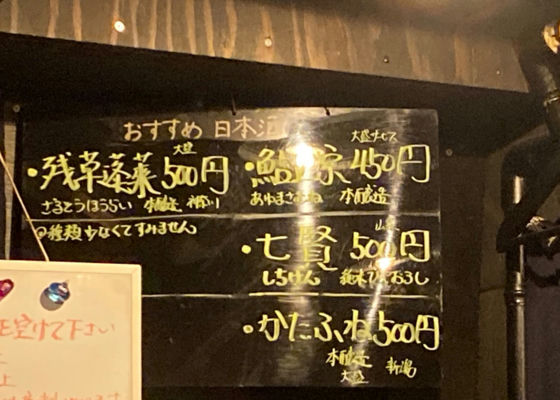 おすすめ 日本酒
大盛
・残草蓬莱 500円
ざるそうほうらい 特別純 神奈川
◎種類少なくてすみません
大盛サービス
・鮎正宗 450円
あゆまさむね 本醸造
山梨
・七賢 500円
しちけん 純米ひやおろし
・かたふね 500円
本醸造 新潟
大盛
を空けて下さい